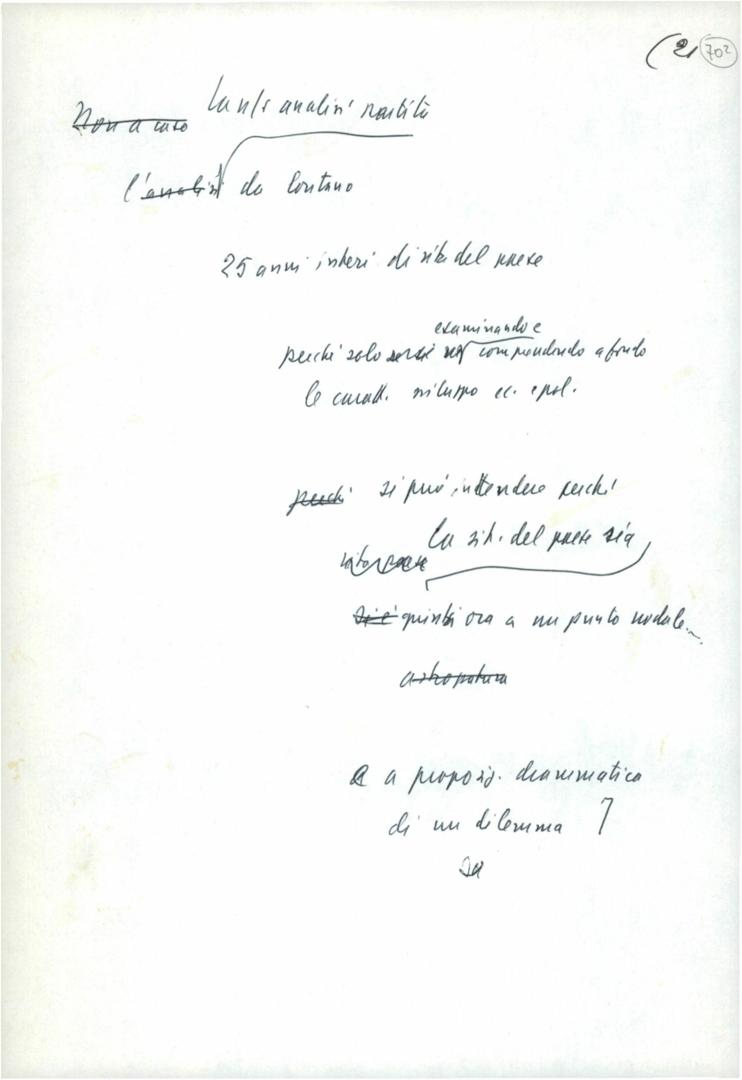 (21 702
Non a caso La n/s analisi partita
l'analisi da lontano
25 anni interi di vita del paese
esaminando e
perché solo comprendendo a fondo
le caratt. sviluppo ec. e pol.
perché si può intendere perché
la sit. del paese sia
si è giunti ora a un punto nodale...
a proposiz. drammatica
di un dilemma